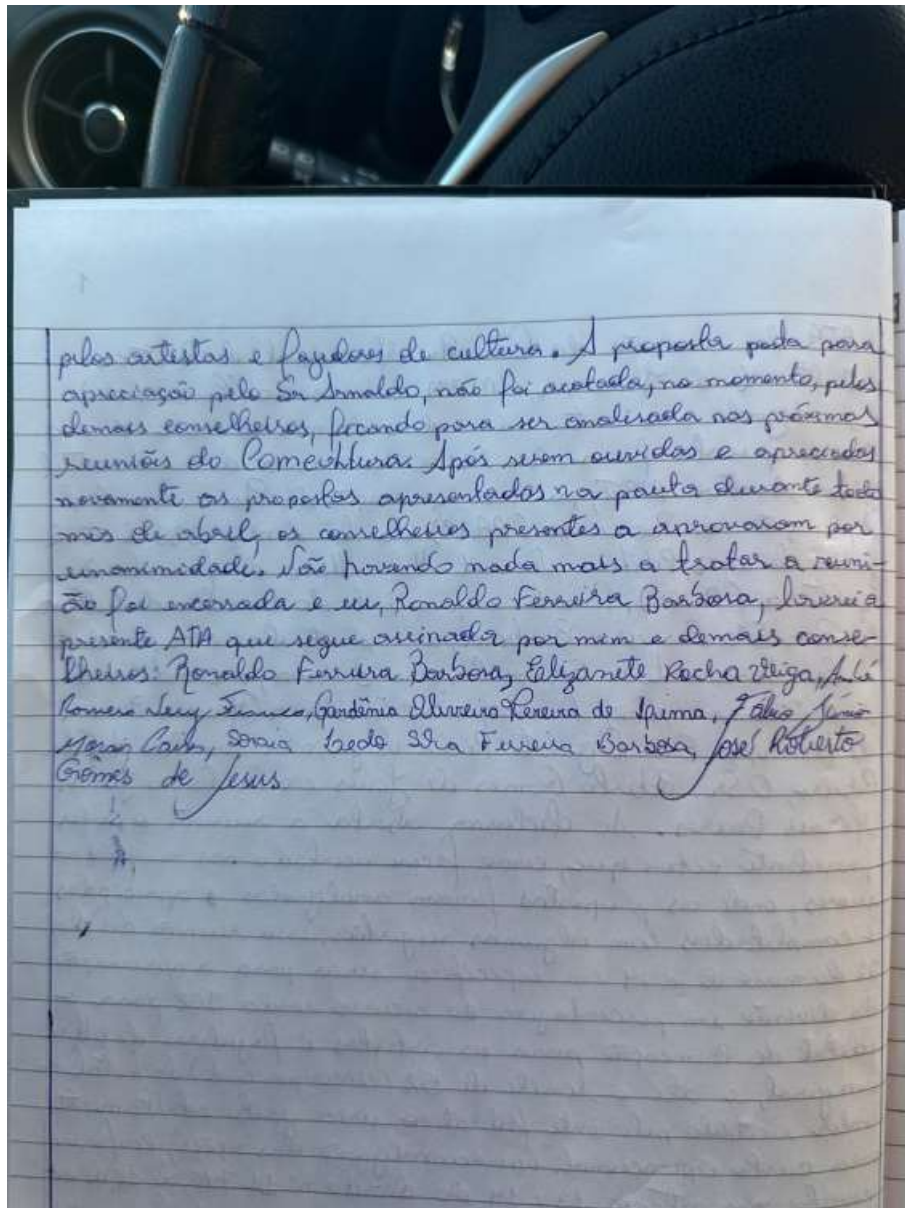 pelos artistas e fazedores de cultura. A proposta posta para
apreciação pelo Sr Arnaldo, não foi acatada, no momento, pelos
demais conselheiros, ficando para ser analisada nas próximas
reuniões do Comcultura. Após serem ouvidas e apreciadas
novamente as propostas apresentadas na pauta durante todo
mês de abril, os conselheiros presentes a aprovaram por
unanimidade. Não havendo nada mais a tratar a reuni-
ão foi encerrada e eu, Ronaldo Ferreira Barbosa, lavrei a
presente ATA que segue assinada por mim e demais conse-
lheiros: Ronaldo Ferreira Barbosa, Elizanete Rocha Veiga, André
Romero, Gardênia Oliveira Pereira de Lima, Fábio Júnior
Morais, Soraia Ferreira Barbosa, José Roberto
Gomes de Jesus